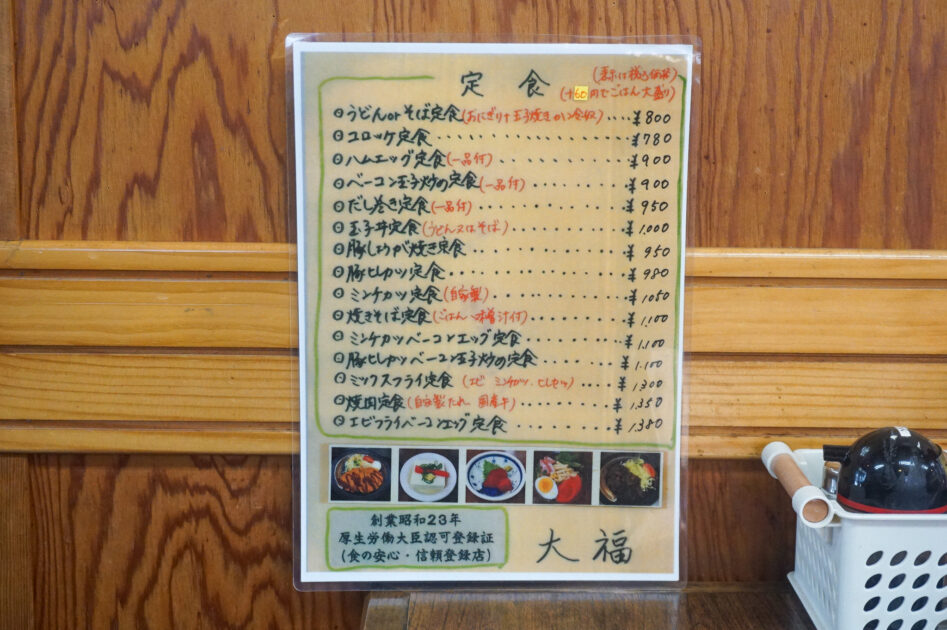 定食
(表示は税込価格)
(+60円でごはん大盛り)
うどんorそば定食(おにぎり+玉子焼き か 冷奴)‥‥¥800
コロッケ定食‥‥¥780
ハムエッグ定食(一品付)‥‥¥900
ベーコン玉子炒め定食(一品付)‥‥¥900
だし巻き定食(一品付)‥‥¥950
玉子丼定食(うどん又はそば)‥‥¥1,000
豚しょうが焼き定食‥‥¥950
豚ヒレカツ定食‥‥¥980
ミンチカツ定食(自家製)‥‥¥1050
焼きそば定食(ごはん、味噌汁付)‥‥¥1,100
ミンチカツベーコンエッグ定食‥‥¥1,100
豚ヒレカツベーコン玉子炒め定食‥‥¥1,100
ミックスフライ定食(エビ ミンチカツ、ヒレカツ)‥‥¥1,300
焼肉定食(自家製たれ 国産牛)‥‥¥1,350
エビフライベーコンエッグ定食‥‥¥1,380
創業昭和23年
厚生労働大臣認可登録証
(食の安心・信頼登録店)
大福